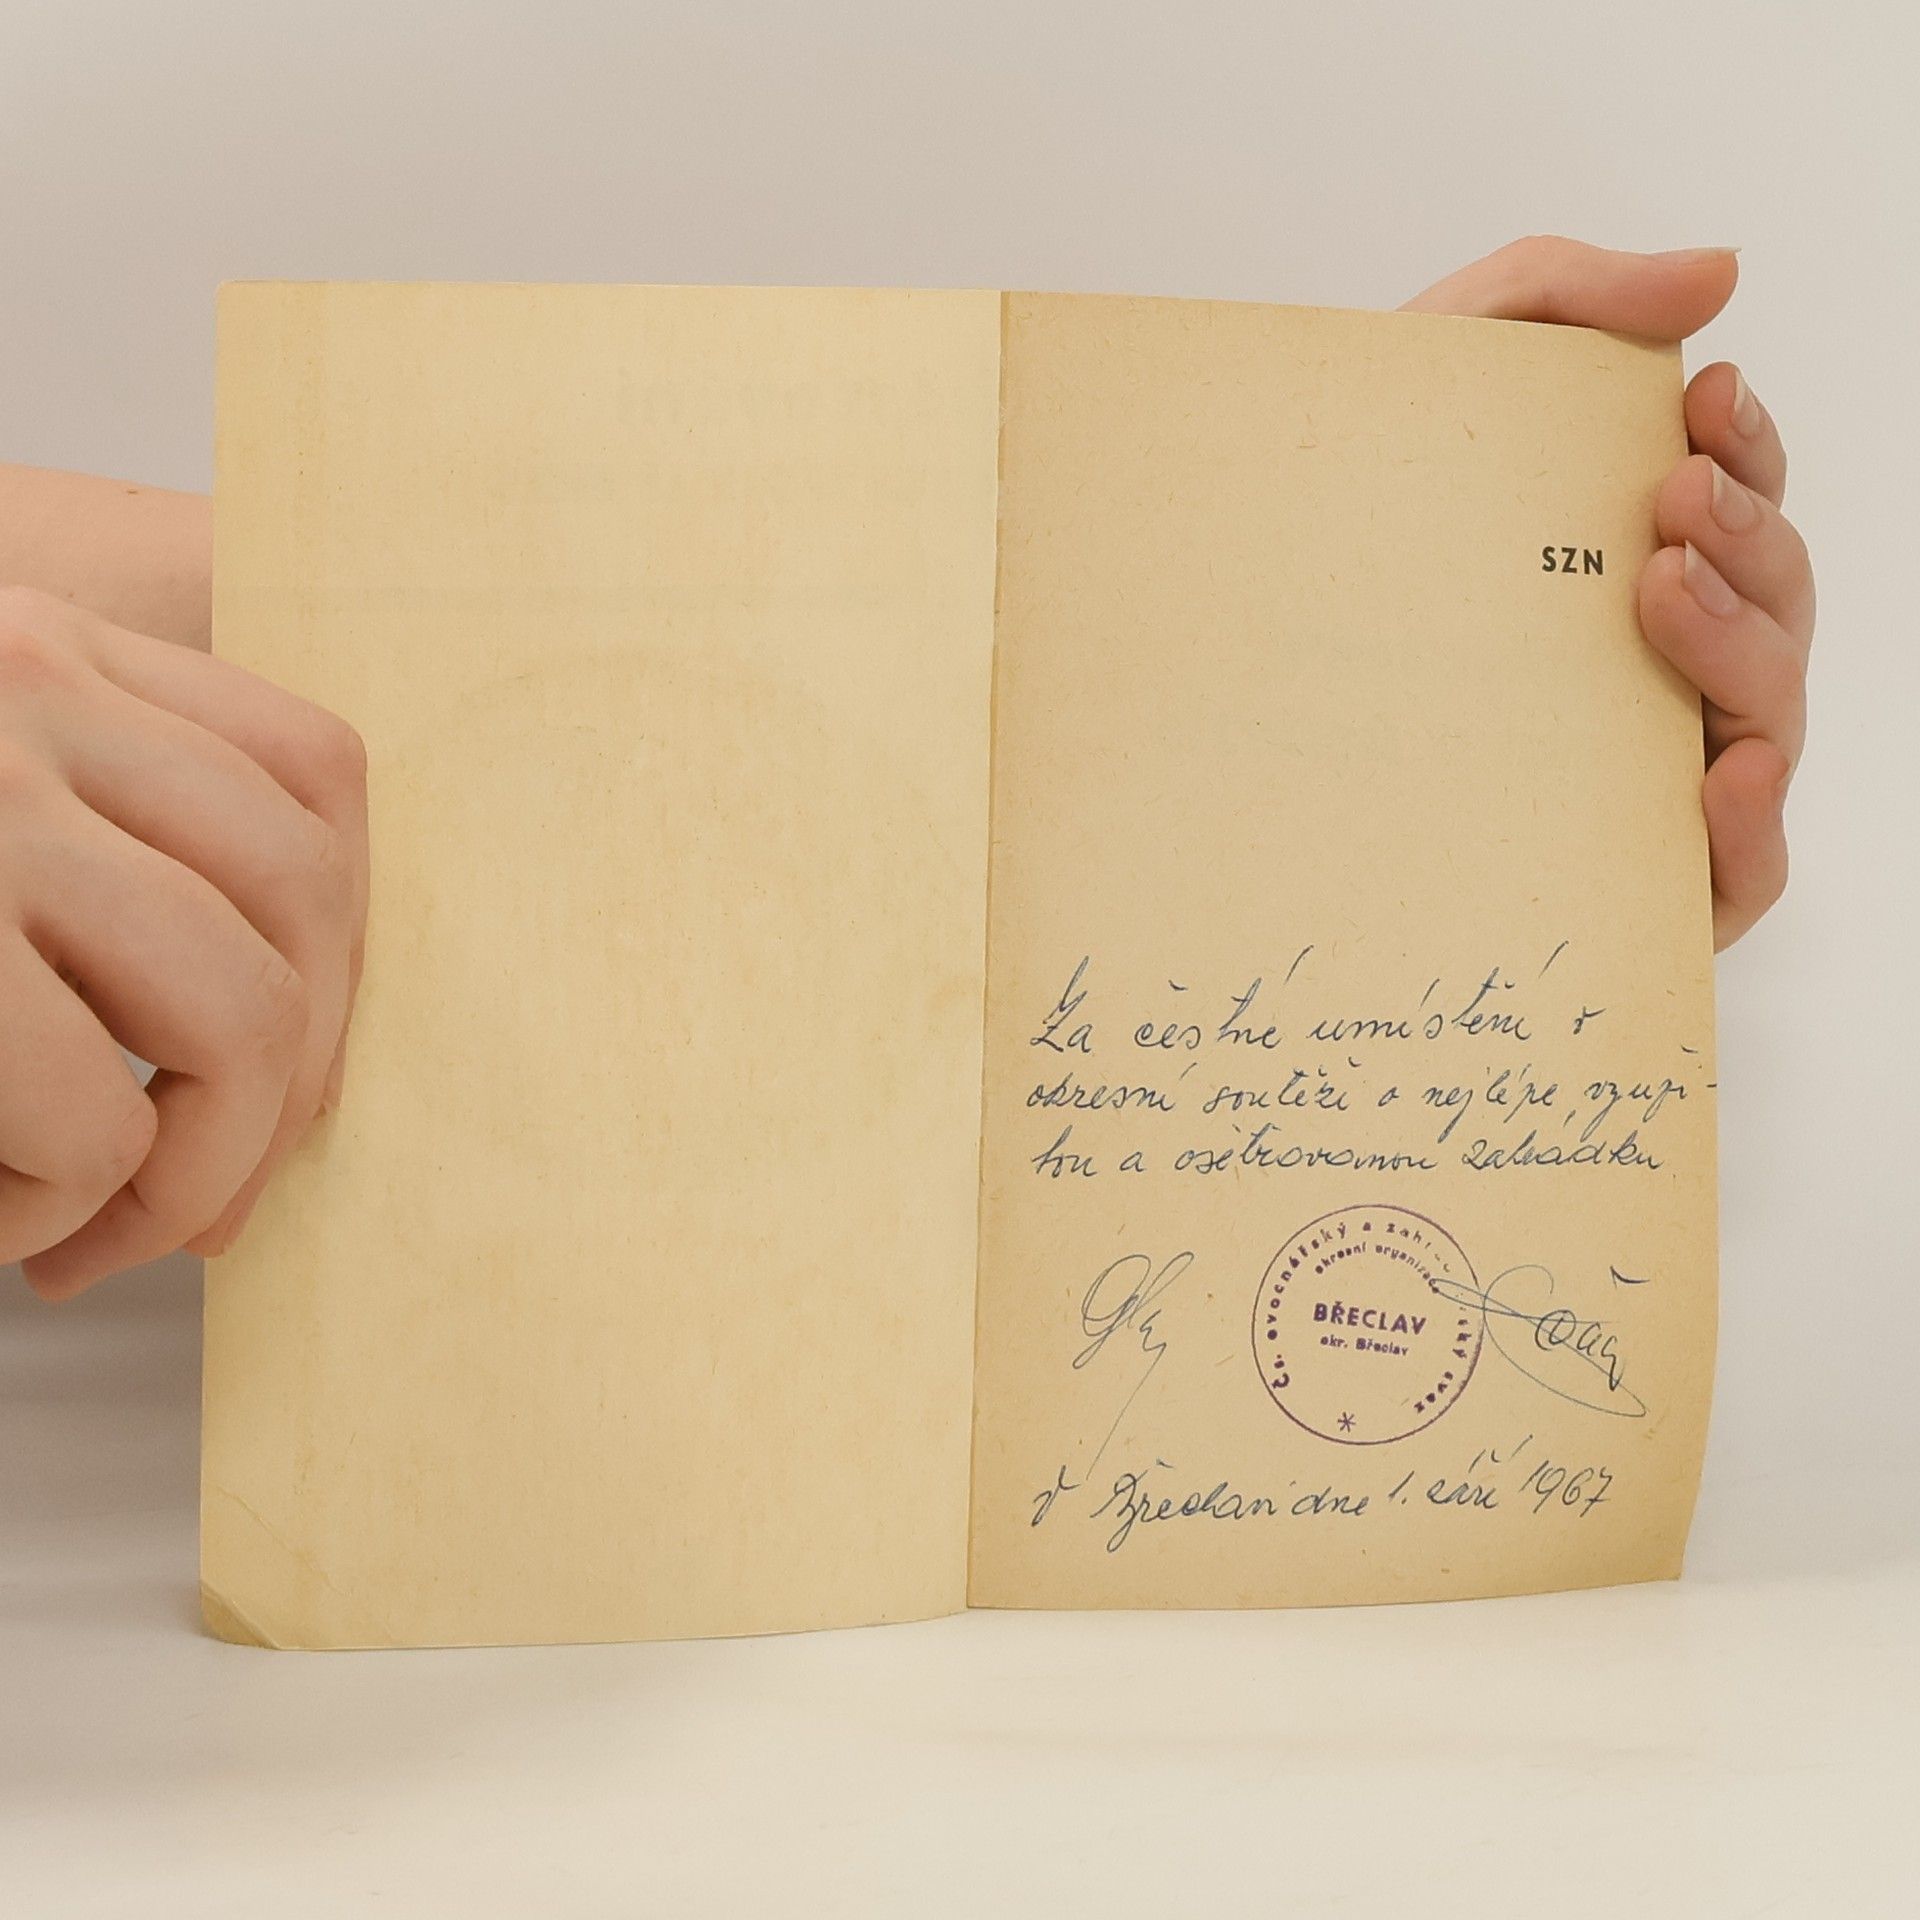 SZN
Za čestné umístění v
okresní soutěži o nejlépe
a ošetřovanou zahrádku
Čs. ovocnářský a svaz
okresní organizace
BŘECLAV
okr. Břeclav
V Břeclavi dne 1. září 1967